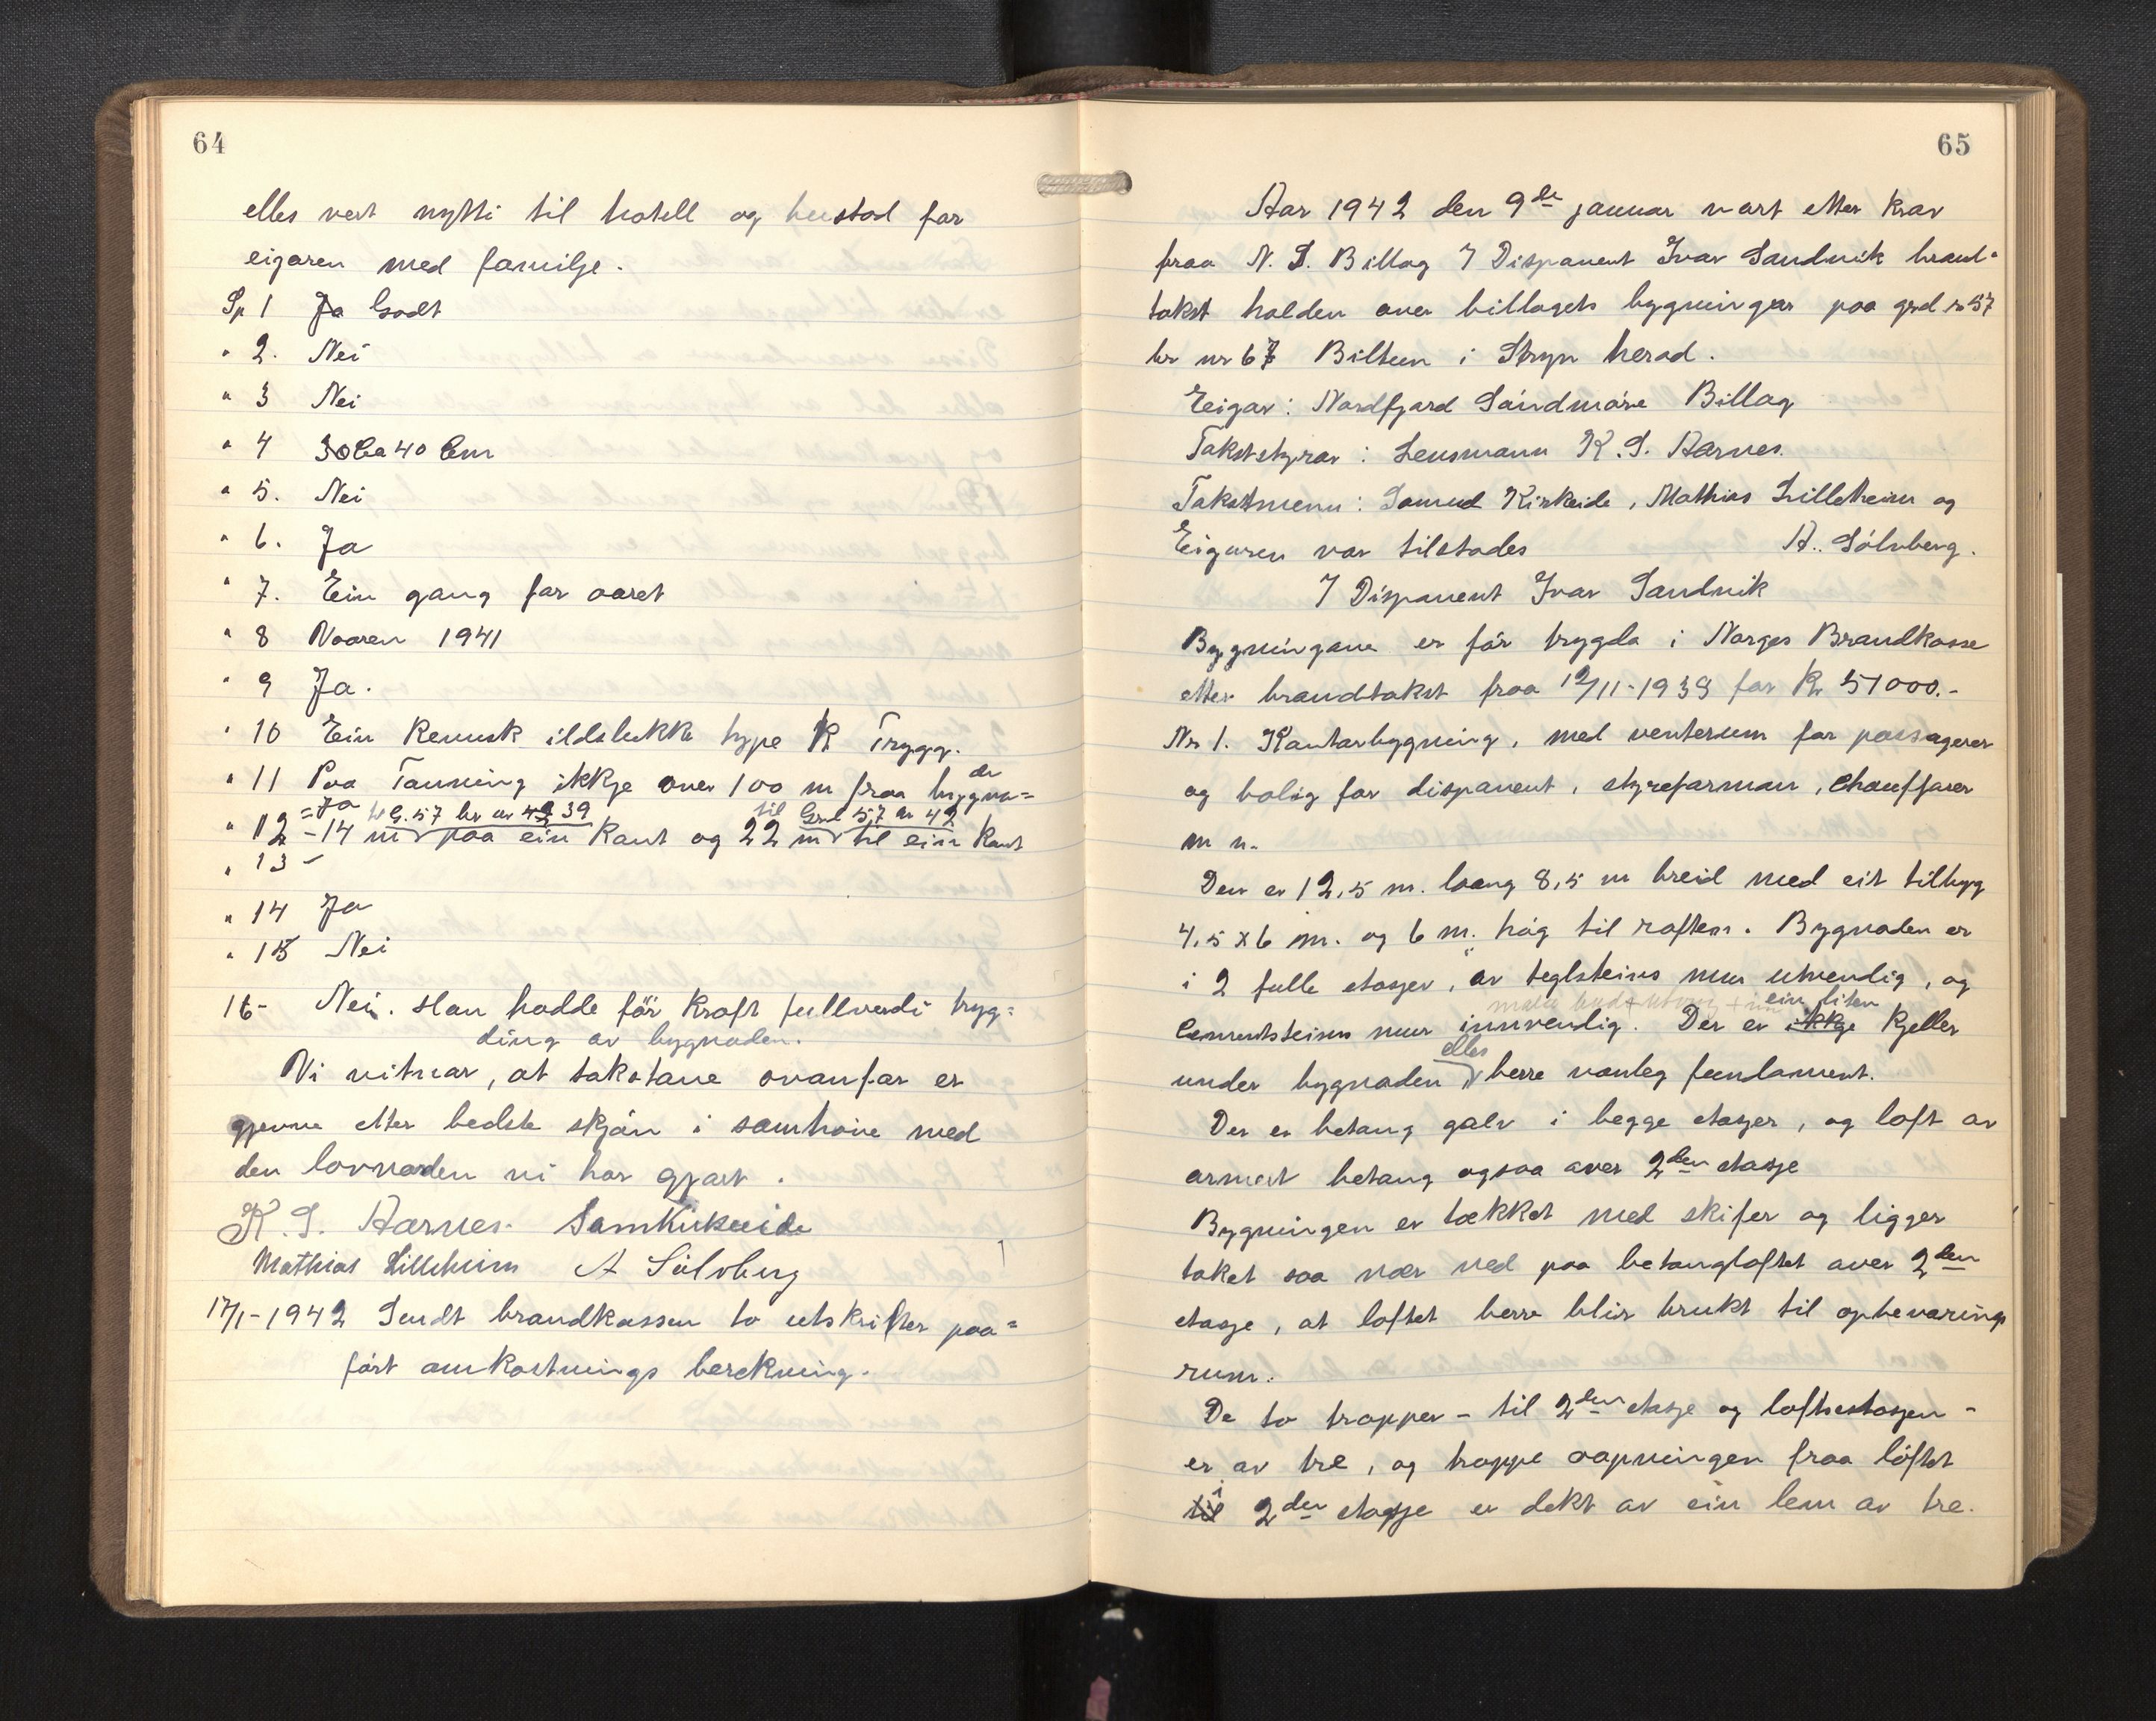 64
elles vert nytti til hotell og bustad for
eigaren med familje.
Sp 1 Ja Godt
" 2. Nei
" 3 Nei
" 4 30 Ca 40 Cm
" 5. Nei
" 6. Ja
" 7. Ein gang for aaret
" 8 Vaaren 1941
" 9 Ja.
" 10 Ein Kemisk ildslukke type R Trygg.
" 11 Paa Tonning ikkje over 100 m fraa bygna=
den
= Ja
G. 57 br nr 39
til Grd 57 nr 42
" 12 - 14 m paa ein Kant og 22 m til ein Kant
" 13 -
" 14 Ja
" 15 Nei
16- Nei. Han hadde för Kraft fullverdi tryg=
ding av bygnaden.
Vi vitnar, at takstane ovanfor er
gjevne etter bedste skjön i samhöve med
den lovnaden vi har gjort.
K. S. Aarnes. Sam Kirkeeide
Mathias Lilleheim A Sölvberg
17/1-1942 Sendt brandkassen to utskrifter paa=
fört omkostnings berekning.
65
Aar 1942 den 9de januar vart etter krav
fraa N. S. Billag / Disponent Ivar Sandvik brand-
takst halden over billagets bygningar paa grd nr 57
br nr 67 Biltun i Stryn herad.
Eigar: Nordfjord Söndmöre Billag
Takststyrar: Lensmann K. S. Aarnes.
Takstmenn: Samuel Kirkeide, Mathias Lilleheim og
A. Sölvberg.
Eigaren var tilstades
/ Disponent Ivar Sandvik
Bygningane er för trygda i Norges Brandkasse
etter brandtakst fraa 12/11-1938 for Kr 51000.-
Nr 1. Kontorbygning, med venterum for passagerer
og bolig for disponent, styreformann, Chaufförer
m n.
Den er 12,5 m. laang 8,5 m breid med eit tilbygg
4,5 x 6 m. og 6 m. hög til raftem. Bygnaden er
i 2 fulle etasjer, av teglsteins mur utvendig, og
ein liten
Cementsteins mur innvendig. Der er ikkje Kjeller
elles
under bygnaden berre vanleg fundament.
Der er betong golv i begge etasjer, og loft av
armert betong ogsaa over 2den etasje
Bygningen er tækket med skifer og ligger
taket saa nær ned paa betongloftet over 2den
etasje, at loftet berre blir brukt til opbevarings
rum.
De to trapper - til 2den etasje og loftsetasjen -
er av tre, og trappe aapningen fraa loftet
til i 2den etasje er dekt av ein lem av tre.